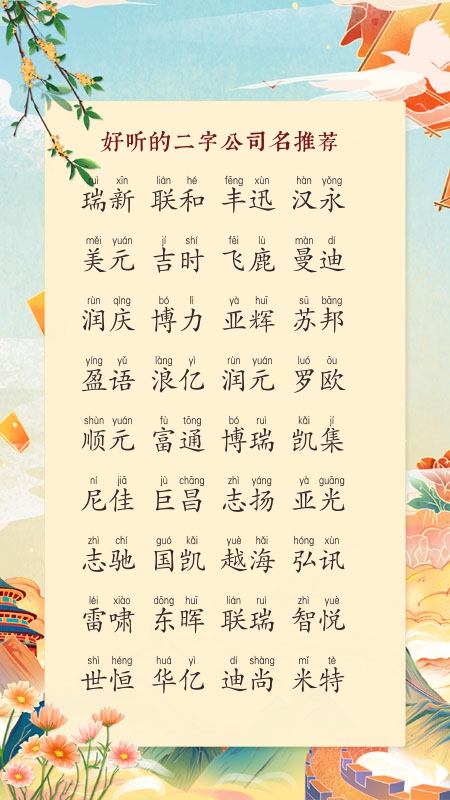 好听的二字公司名推荐
ruì xīn lián hé fēng xùn hàn yǒng
瑞新 联和 丰迅 汉永
měi yuán jí shí fēi lù màn dí
美元 吉时 飞鹿 曼迪
rùn qìng bó lì yà huī sū bāng
润庆 博力 亚辉 苏邦
yíng yǔ làng yì rùn yuán luó ōu
盈语 浪亿 润元 罗欧
shùn yuán fù tōng bó ruì kǎi jí
顺元 富通 博瑞 凯集
ní jiā jù chāng zhì yáng yà guāng
尼佳 巨昌 志扬 亚光
zhì chí guó kǎi yuè hǎi hóng xùn
志驰 国凯 越海 弘讯
léi xiào dōng huī lián ruì zhì yuè
雷啸 东晖 联瑞 智悦
shì héng huá yì dí shàng mǐ tè
世恒 华亿 迪尚 米特